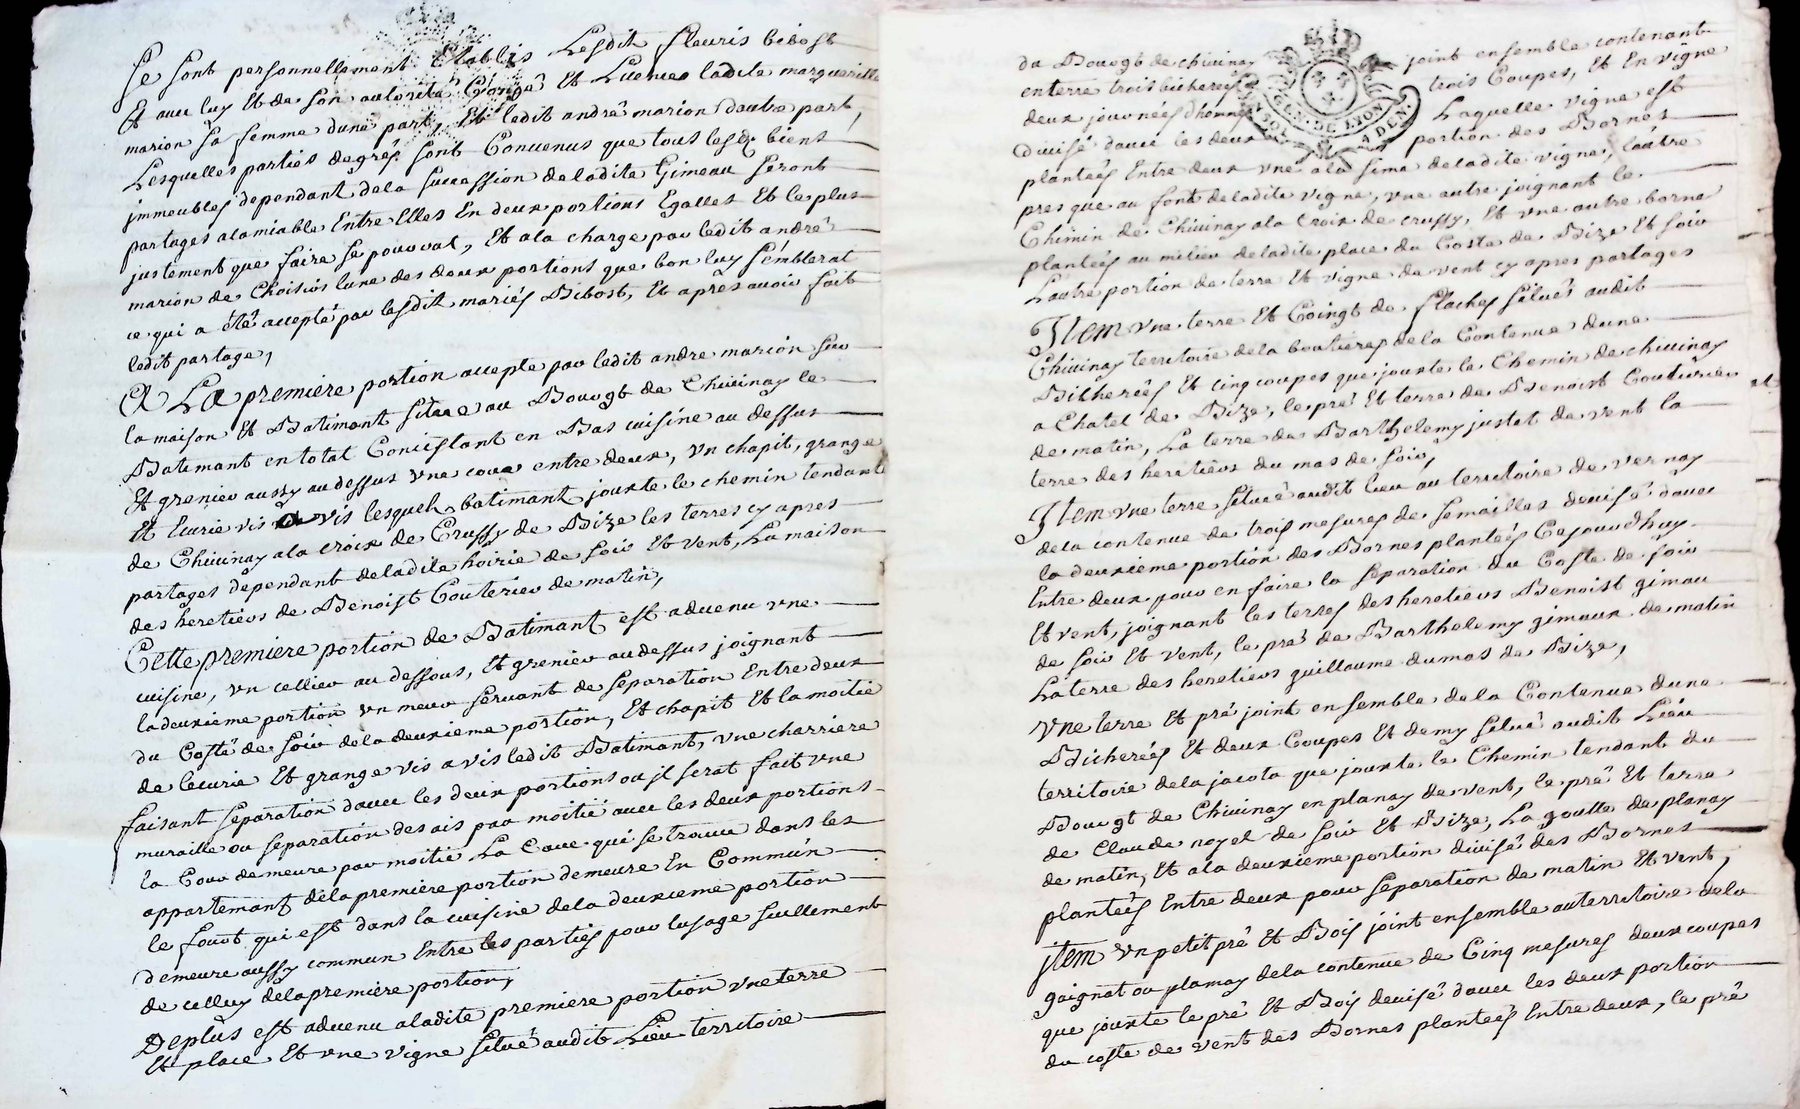 Se sont personnellement Etablis Lesdit fleuris bibost
Et avec luy Et de son autorité Et Licence ladite marguerite
marion sa femme dune part, Et ledit andré marion dautre part,
Lesquelles parties degrés sont Convenus que tous lesd. biens
jmmeubles dependant dela succession deladite Gimeau seront
partages alamiable Entre Elles En deux portions Egalles Et le plus
justement que faire se pouvoat, Et ala charge par ledit andré
marion de Choisirs lune des deux portions que bon luy semblerat
ce qui a été accepté par lesdit mariés Bibost, Et apres avoir fait
ledit partage,
A La premiere portion accepte par ledit andre marion sur
la maison Et Batimant situee au Bourgt de Chivinay le
Batimant en total Concistant en Bas cuisine au dessus
Et grenier aussy au dessus une cour entre deux, un chapit, grange
Et Ecurie vis a vis lesquels batimant jouxte le chemin tendant
de Chivinay ala croix de Crussy de Bize les terres cy apres
partages dependant deladite hoirie de soir Et vent, La maison
des heretiers de Benoist Couterier de matin,
Cette premiere portion de Batimant est advenu une
cuisine, un cellier au dessous, Et grenier au dessus joignant
la deuxieme portion un meur servant de separation Entre deux
du Costé de soir dela deuxieme portion, Et chapit Et la moitié
de lecurie Et grange vis avis ledit Batimant, une charriere
faisant separation davec les deux portions ou jl serat fait une
muraille ou separation des ais par moitié avec les deux portions
la Cour demeure par moitié La Cave qui se trouve dans les
appartemant dela premiere portion demeure En Commun
le fourt qui est dans la cuisine dela deuxieme portion
demeure aussy commun Entre les parties pour lusage seullement
de celluy dela premiere portion,
Deplus est advenu aladite premiere portion une terre
Et place Et une vigne situé audit Lieu territoire
du Bourgt de chivinay joint ensemble contenant
en terre trois bicherées trois Coupes, Et En vigne
deux journées dhomme Laquelle vigne est
divisé davec les deux portion des Bornes
plantées Entre deux une ala sima deladite vigne, lautre
presque au font deladite vigne, une autre joignant le
Chimin de Chivinay ala Croix de crussy, Et une autre borne
plantées au milieu deladite place du Costé de Bize Et soir
Lautre portion de terre Et vigne de vent cy apres partages
Jtem une terre Et Coingt de flaches situés audit
Chivinay territoire dela boutieres dela Contenue dune
Bicherées Et cinq coupes que jouxte le Chemin de chivinay
a Chatel de Bize, le pré Et terre de Benoist Couturier
de matin, La terre de Barthelemy justat de vent la
terre des heretiers du mas de soir,
Jtem une terre situeé audit lieu au territoire de vernay
dela contenue de trois mesures de semailles devisé davec
la deuxieme portion des Bornes plantées Cejourdhuy
Entre deux pour en faire la separation du Coste de soir
Et vent, joignant les terres des heretiers Benoist gimau
de soir Et vent, le pré de Barthelemy gimeux de matin
La terre des heretiers guillaume dumas de Bize,
Une terre Et pré joint ensemble dela Contenue dune
Bicherées Et deux Coupes Et demy situé audit Lieu
territoire dela jacota que jouxte le Chemin tendant du
Bourgt de Chivinay en planay de vent, le pré Et terre
de Claude noyel de soir Et Bize, La goutte de planay
de matin, Et ala deuxieme portion divisé des Bornes
plantées Entre deux pour separation de matin Et vent,
jtem un petit pré Et Bois joint ensemble au territoire dela
gaignat ou plamay dela contenue de Cinq mesures deux coupes
que jouxte le pré Et Bois devisé davec les deux portion
du coste de vent des Bornes plantées Entre deux, le pré